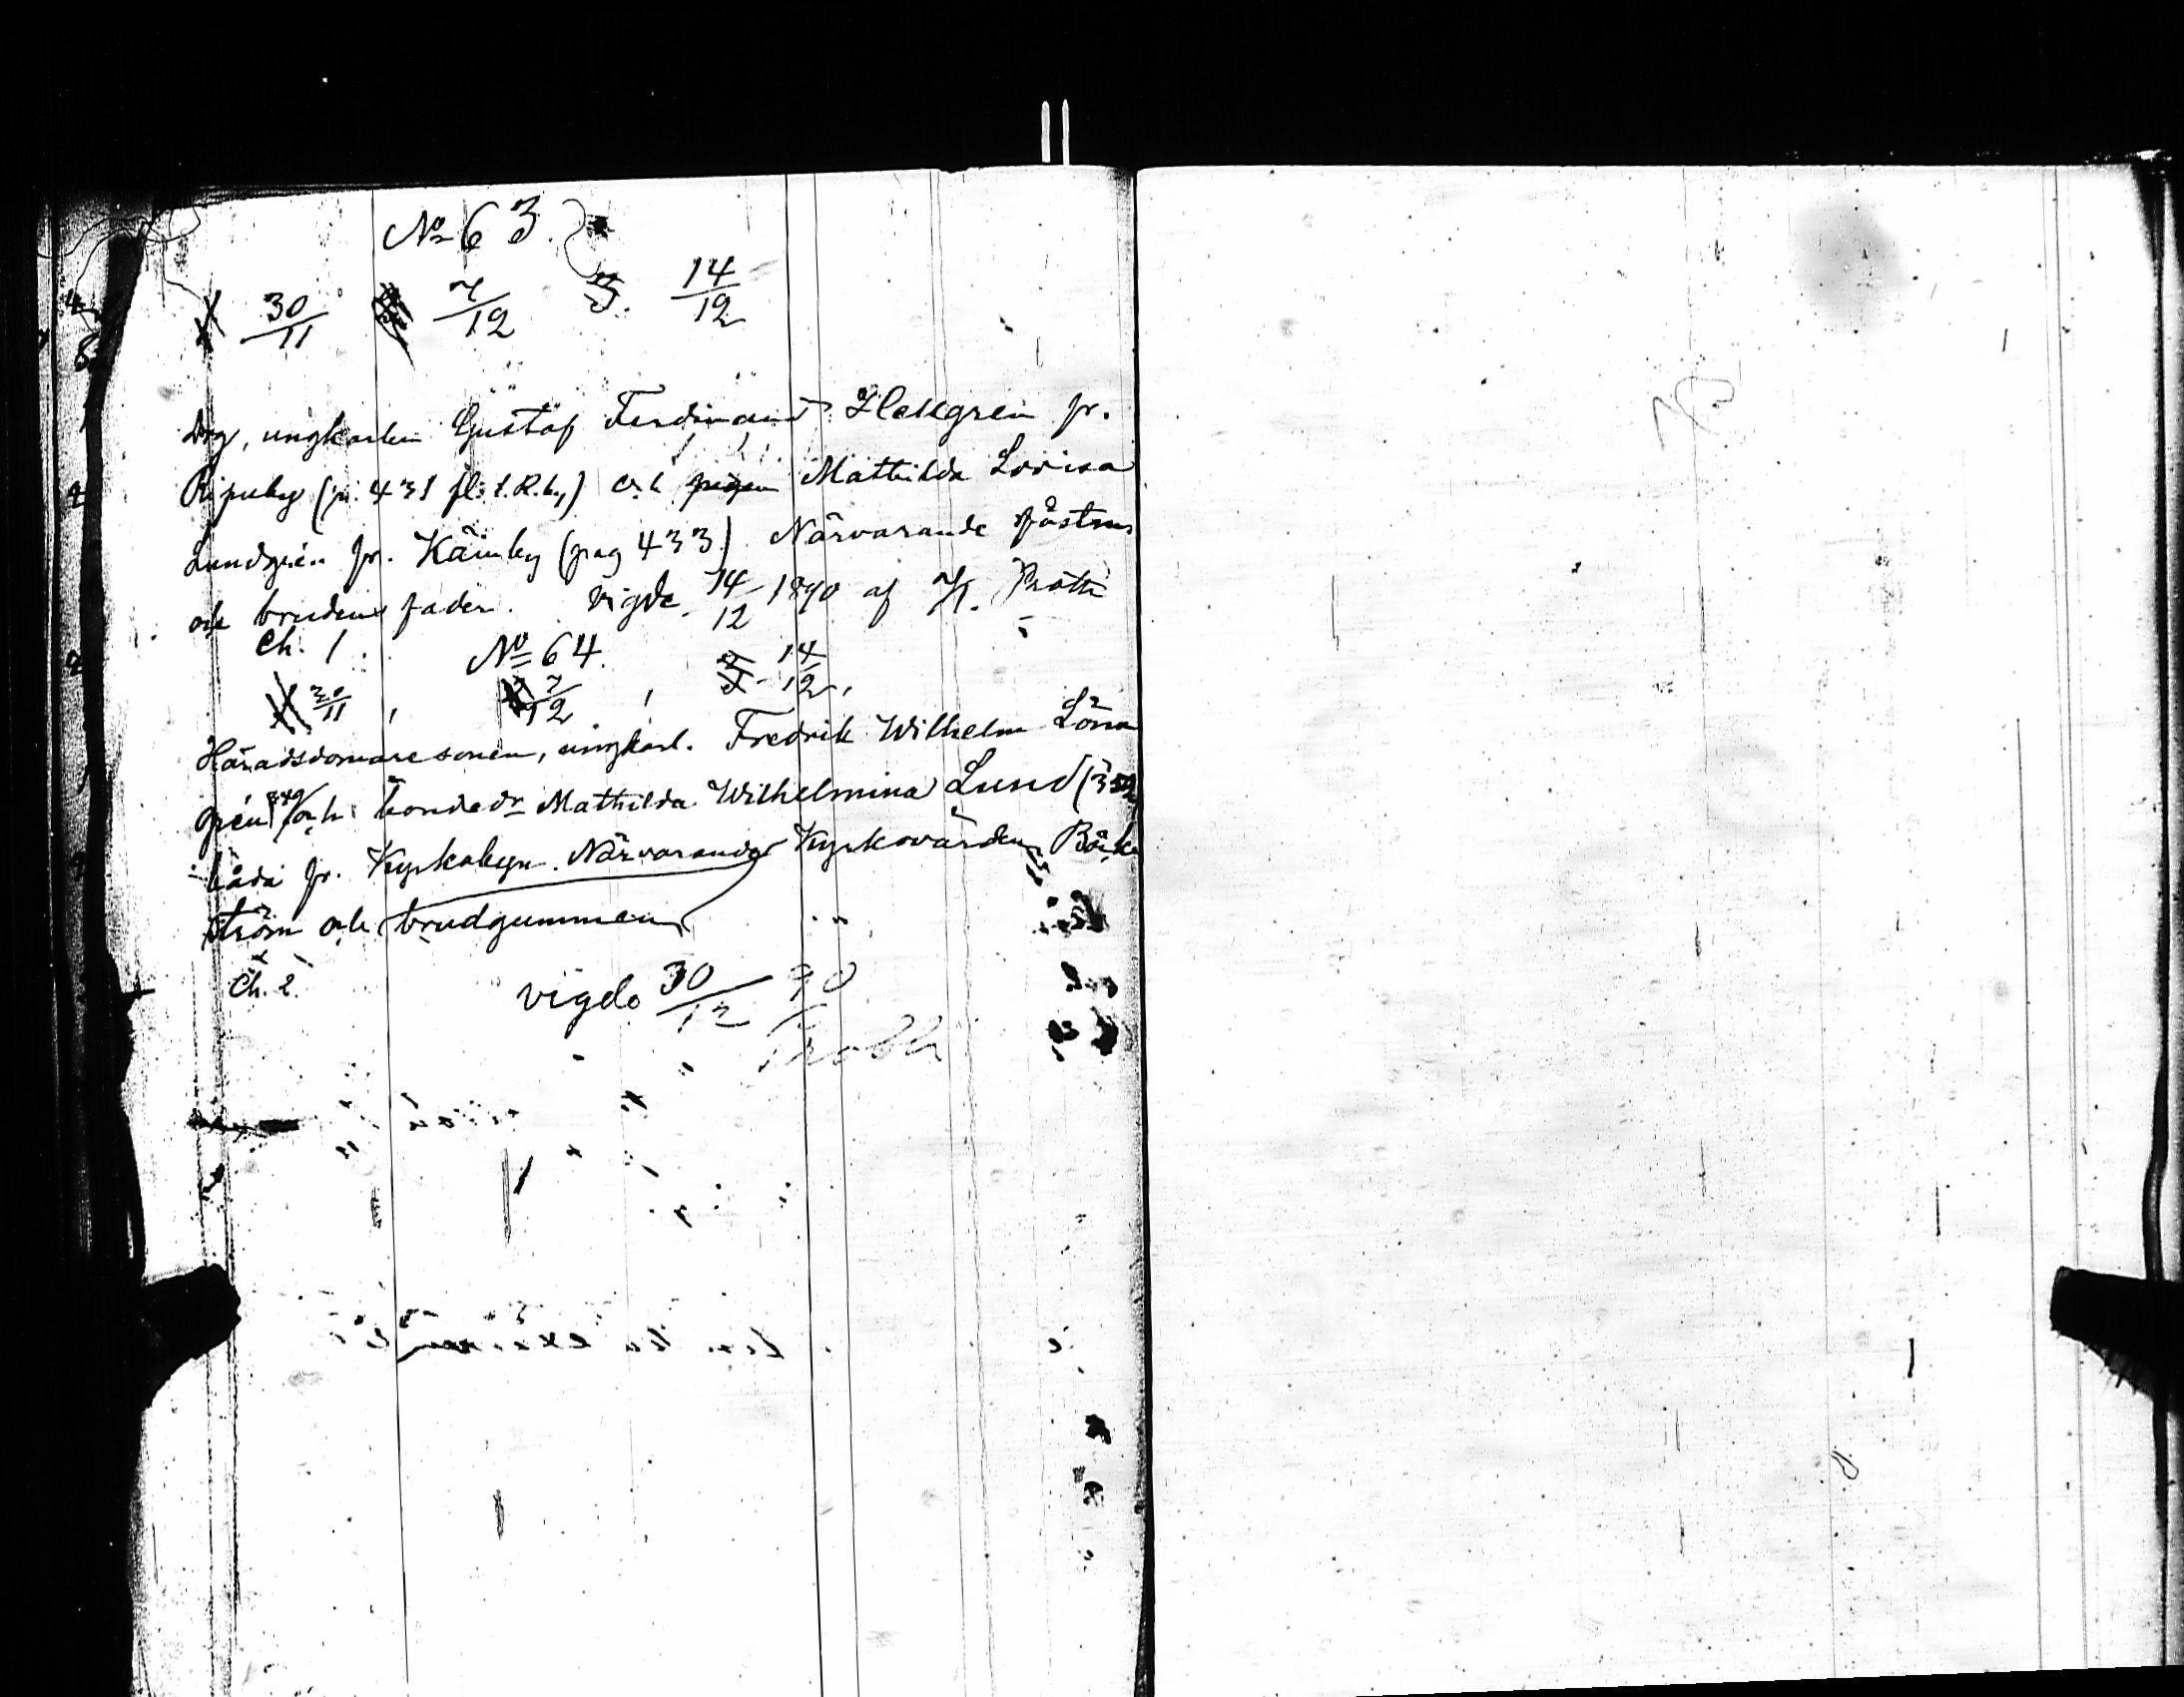 № 63.
30/11 7/12 3. 14/12
Drg, ungkarlen Gustaf Ferdinand Hellgren fr.
Ripuby (p. 431 fl. t. R. by) och pigan Mathilda Lovisa
Lundgrén fr. Kämby (pag 433). Närvarande fästm.
och brudens fader. Vigde 14/12 1890 af
Ch. 1. № 64.
30/11, 7/12, 3 14/12,
Häradsdomaresonen, ungkarl. Fredrik Wilhelm Lönn
grén och bondedr Mathilda Wilhelmina Lund (352
båda fr. Kyrkobyn. Närvarande Kyrkovärden Bäck
ström och brudgummen
Ch. 2.
vigde 30/12 90